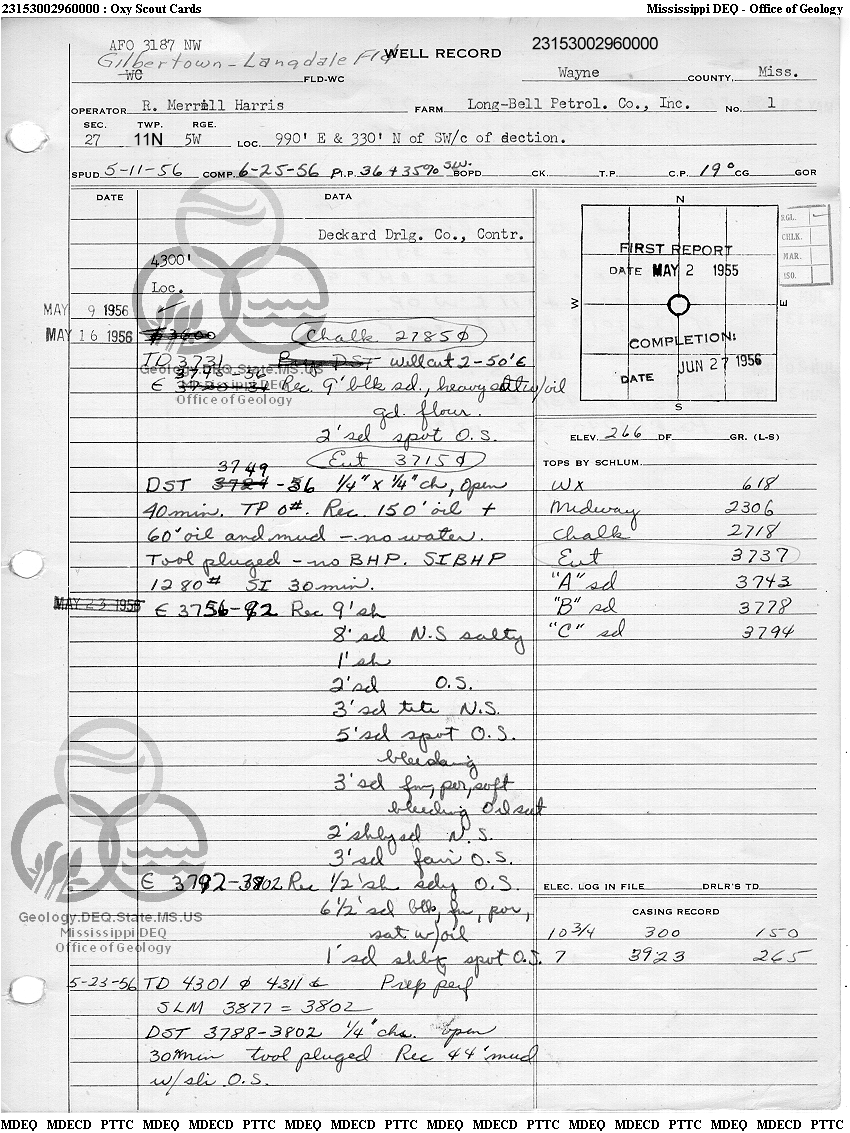 23153002960000 : Oxy Scout Cards Mississippi DEQ - Office of Geology
AFO 3187 NW
Gilbertown - Langdale Fld WELL RECORD 23153002960000
WC FLD-WC Wayne COUNTY, Miss.
OPERATOR R. Merrill Harris FARM Long-Bell Petrol. Co., Inc. No. 1
SEC. TWP. RGE.
27 11N 5W LOC. 990' E & 330' N of SW/c of dection.
SPUD 5-11-56 COMP. 6-25-56 P.I.P. 36 + 35% SW. BOPD CK. T.P. C.P. 19° CG GOR
DATE DATA
Deckard Drlg. Co., Contr.
4300'
Loc.
MAY 9 1956
MAY 16 1956 Chalk 2785 ϕ
TD 3731 will cut 2-50' ₵
₵ Rec. 9' blk sd., heavy sat w/oil
gd. flour.
2' sd spot O.S.
Eut 3715 ϕ
3749
DST 3724 -56 1/4" x 1/4" ch, open
40 min. TP 0#. Rec. 150' oil +
60' oil and mud - no water.
Tool pluged - no BHP. SIBHP
1280# SI 30 min.
MAY 23 1956 ₵ 3756-92 Rec 9' sh
8' sd N.S salty
1' sh
2' sd O.S.
3' sd tite N.S.
5' sd spot O.S.
bleeding
3' sd fn, por, soft
bleeding Oil sat
2' shly sd N.S.
3' sd fair O.S.
₵ 3792-3802 Rec 1/2' sh sdy O.S.
6 1/2' sd blk, fn, por,
sat w/oil
1' sd shly spot O.S.
5-23-56 TD 4301 ϕ 4311 Prep perf
SLM 3877 = 3802
DST 3788-3802 1/4" chs. open
30 min tool pluged Rec 44' mud
w/sli O.S.
N
W
E
S
FIRST REPORT
DATE MAY 2 1955
COMPLETION:
DATE JUN 27 1956
RGL.
CHLK.
MAR.
ISO.
ELEV. 266 DF. GR. (L-S)
TOPS BY SCHLUM.
WX 618
Midway 2306
Chalk 2718
Eut 3737
"A" sd 3743
"B" sd 3778
"C" sd 3794
ELEC. LOG IN FILE DRLR'S TD
CASING RECORD
10 3/4 300 150
7 3923 265
Geology.DEQ.State.MS.US
Mississippi DEQ
Office of Geology
Geology.DEQ.State.MS.US
Mississippi DEQ
Office of Geology
MDEQ MDECD PTTC MDEQ MDECD PTTC MDEQ MDECD PTTC MDEQ MDECD PTTC MDEQ MDECD PTTC MDEQ MDECD PTTC